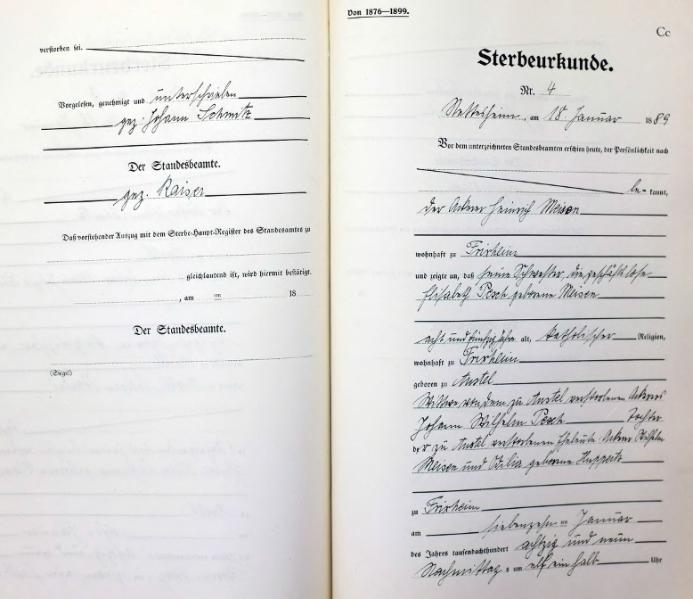 verstorben sei.
Vorgelesen, genehmigt und unterschrieben
gez. Johann Schmitz
Der Standesbeamte.
gez. Kaiser
Daß vorstehender Auszug mit dem Sterbe-Haupt-Register des Standesamts zu
gleichlautend ist, wird hiermit bestätigt.
, am ten 18
Der Standesbeamte.
(Siegel)
Von 1876—1899.
Cc
Sterbeurkunde.
Nr. 4
am 18. Januar 1889
Vor dem unterzeichneten Standesbeamten erschien heute, der Persönlichkeit nach
be- kannt,
der Ackerer Heinrich Meisen
wohnhaft zu Frixheim
und zeigte an, daß seine Schwester, die geschäftslose
Elisabeth Pesch geborene Meisen
acht und fünfzig Jahre alt, katholischer Religion,
wohnhaft zu Frixheim
geboren zu Anstel
Wittwe von dem zu Anstel verstorbenen Ackerer
Johann Wilhelm Pesch Tochter
der zu Anstel verstorbenen Eheleute Ackerer Wilhelm
Meisen und geborene Huppertz
zu Frixheim
am siebenzehn ten Januar
des Jahres tausendachthundert achtzig und neun
Nachmittag s um elf ein halb Uhr